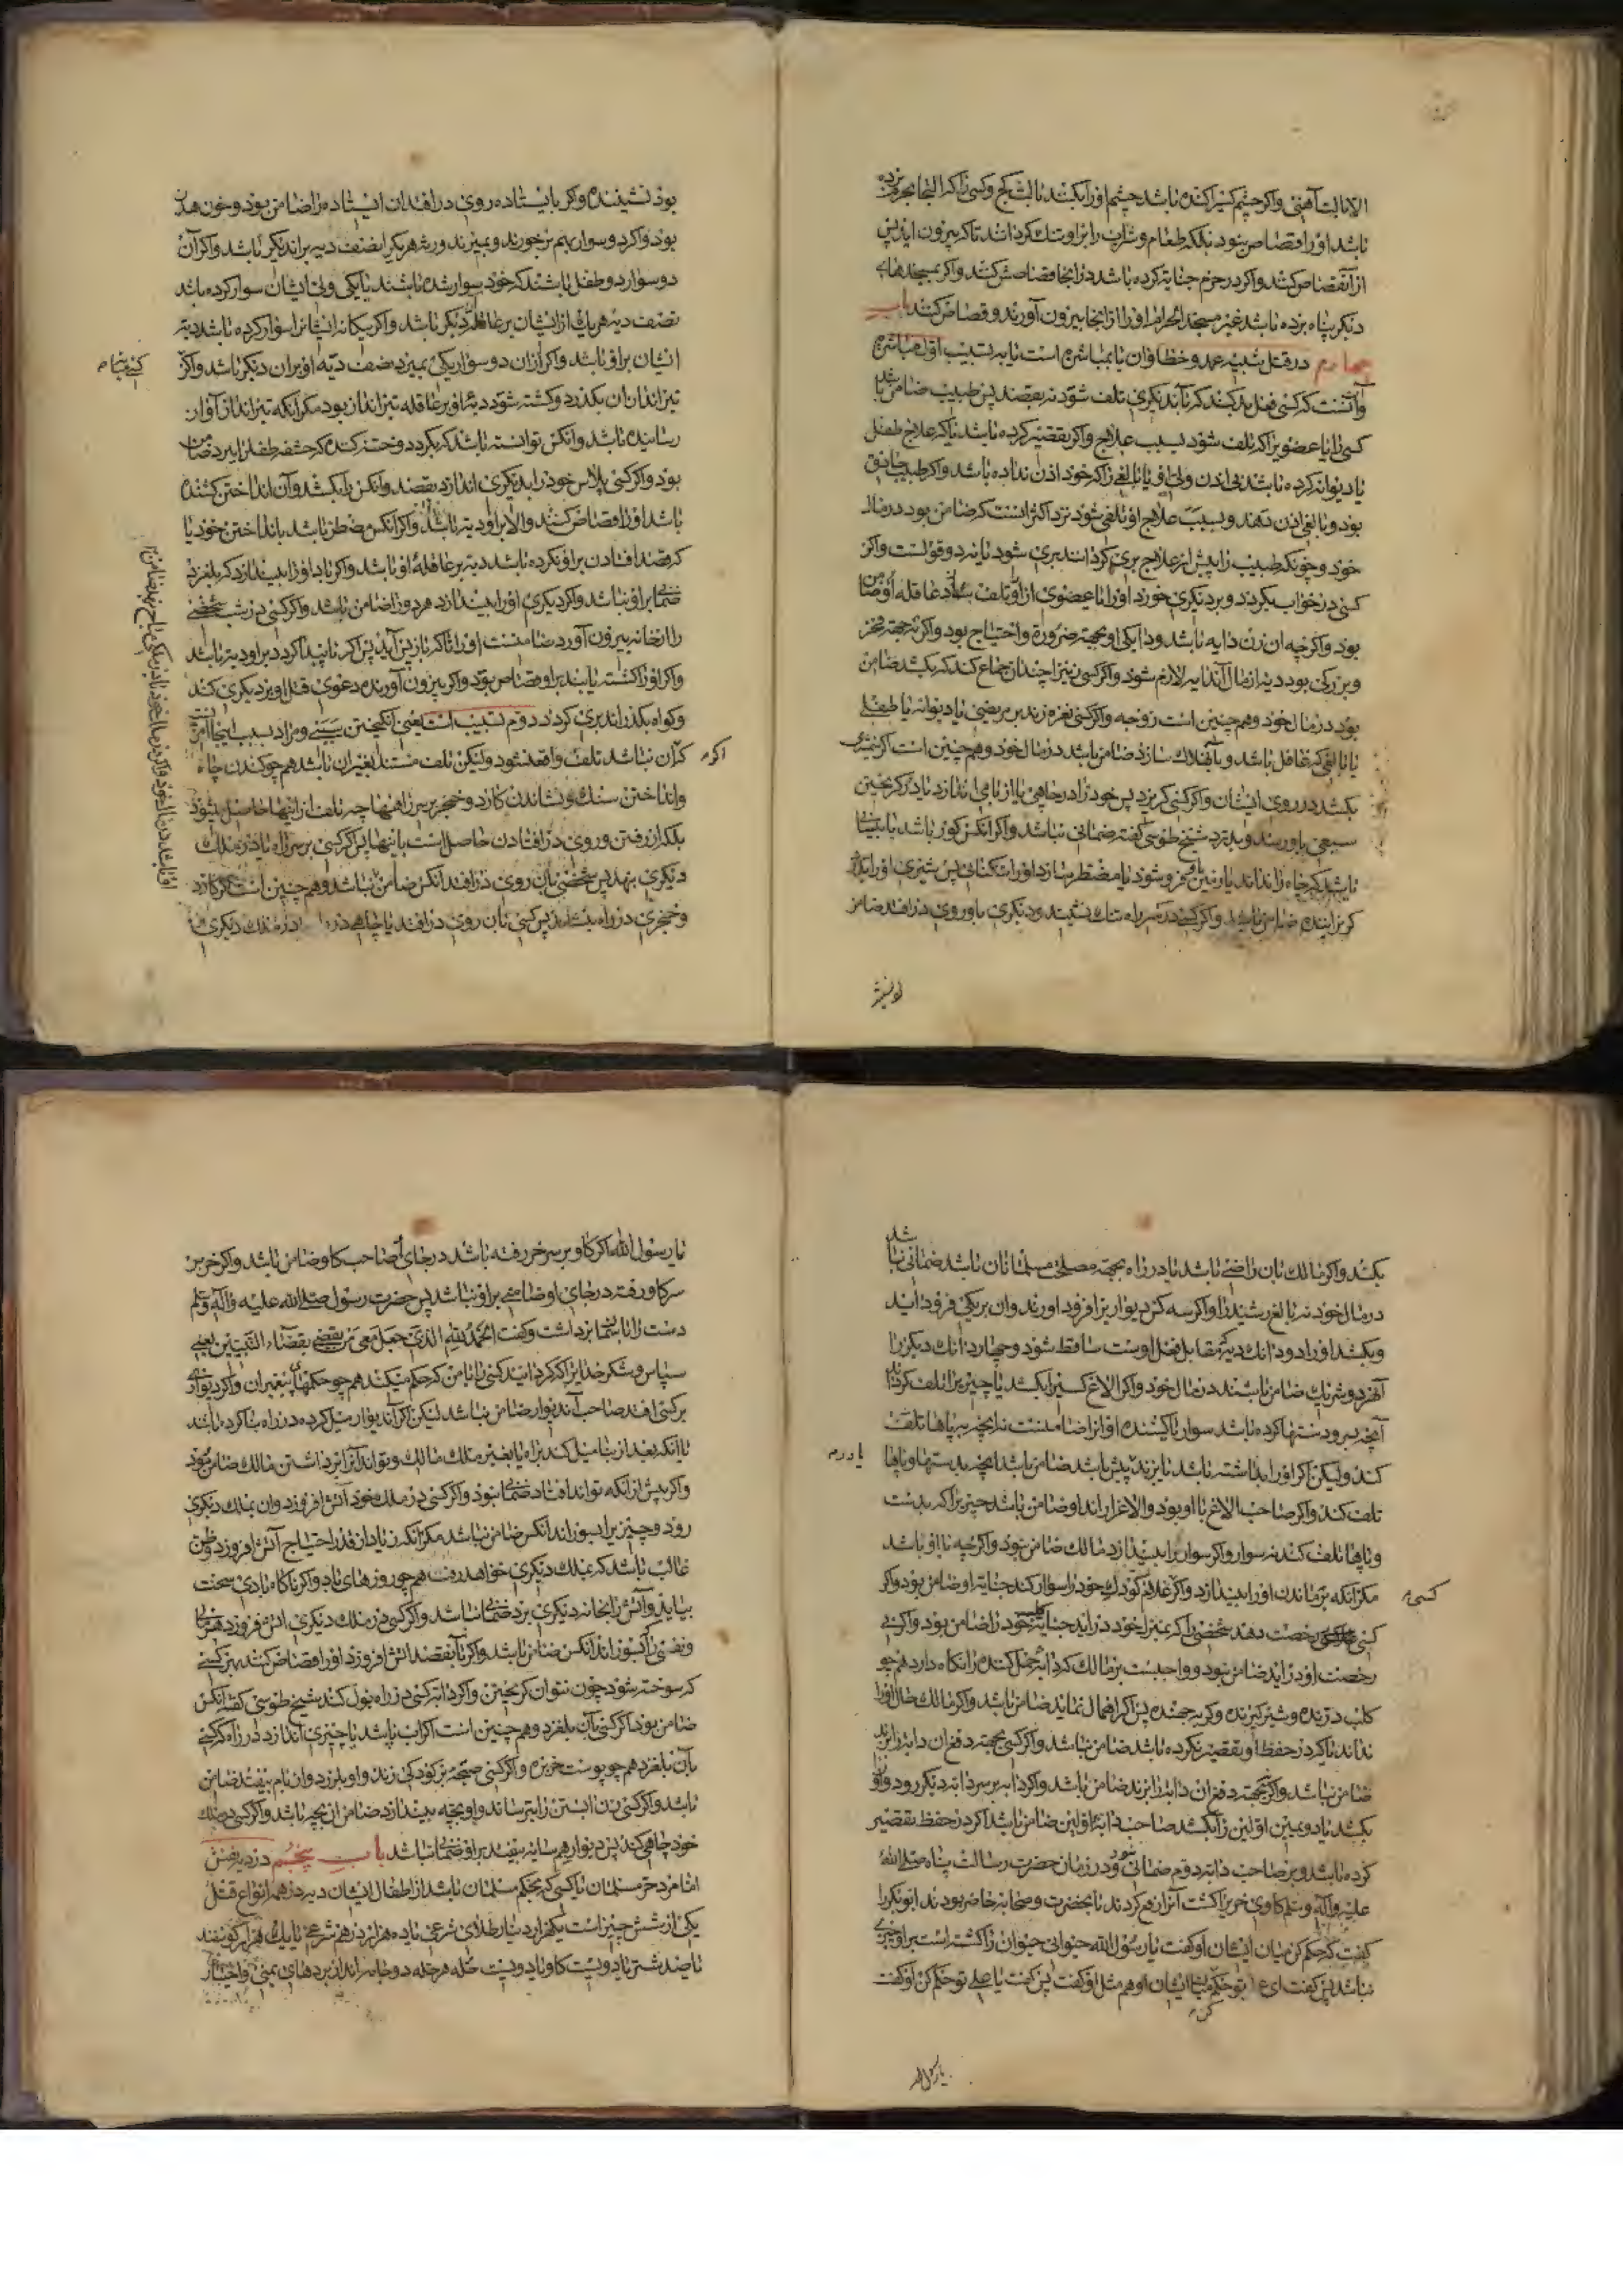 الا بالت آهنی و اگر چشم کسیرا کنده باشد چشم او را بکنند بالت کج و کسی را که التجا بحرم برده
باشد او را قصاص نبود بلکه طعام و شراب را برو تنک کرداند تا که بیرون اید پس
از آن قصاص کنند و اگر در حرم جنایة کرده باشد در انجا قصاصش کنند و اگر بمسجدهای
دیگر پناه برده باشد غیر مسجد الحرام او را از انجا بیرون آورند و قصاص کنند باب
چهارم در قتل شبیه عمد و خطا و ان یا بمباشرة است یا به تسبیب اول مباشرة
و آنست که کسی فعل بد کند که بآن دیگری تلف شود نه بقصد پس طبیب ضامن باشد
کسی را یا عضویرا که تلف شود بسبب علاج و اگر تقصیر کرده باشد یا که علاج طفل
یا دیوانه کرده باشد بی اذن ولی او یا بالغی را که خود اذن نداده باشد و اگر طبیب حاذق
بود و بالغ اذن دهند و بسبب علاج او تلفی شود نزد اکثر انست که ضامن بود در مال
خود و چونکه طبیب را پیش از علاج بری کردانند بری شود یا نه دو قولست و اگر
کسی در خواب بگردد و بر دیگری خورد او را یا عضوی از او تلف سازد عاقله او ضامن
بود و اگر چه ان زن دایه باشد و دایکی او بجهة ضرورة و احتیاج بود و اگر نه بجهة فخر
و بزرکی بود دیة از مال آن دایه لازم شود و اگر کسی نیز را چندان جماع کند که بکشد ضامن
بود در مال خود و هم چنین است زوجه و اگر کسی نعره زند بر مریضی یا دیوانه یا طفلی
یا بالغی که غافل باشد و بآن هلاک سازد ضامن باشد در مال خود و هم چنین است اگر شمشیر
بکشد در روی ایشان و اگر کسی گریزد پس خود را در چاهی یا از بامی اندازد یا در گریختن
سبعی باو رسد و بدرد شیخ طوسی گفته ضمانی نباشد و اگر انکس کور باشد یا بینا
باشد که چاه را نداند یا زمین باو فرو شود یا مضطر سازد او را تنکنائی پس شیری او را بدرد
گریزاننده ضامن باشد و اگر کسی در سر راه تنک نشیند و دیگری باو روی در افتد ضامن
لو نشیند
بود نشیننده و اگر بایستاده روی در افتد ان ایستاده را ضامن بود و خون هدر
بود و اگر دو سوار بهم برخورند و بمیرند ورثه هر یک را نصف دیه بر ان دیگر باشد و اگر آن
دو سوار دو طفل باشند که خود سوار شده باشند یا یکی ولی ایشان سوار کرده باشد
نصف دیه هر یک از ایشان بر عاقله آن دیگر باشد و اگر بیکانه ایشانرا سوار کرده باشد دیة
ایشان برو باشد و اگر از ان دو سوار یکی بمیرد نصف دیة او بر ان دیگر باشد و اگر
کسی بمیان
تیر اندازان بگذرد و کشته شود دیة او بر عاقله تیر انداز بود مگر انکه تیر انداز آواز
رسانیده باشد و انکس توانسته باشد که بگردد و ختنه کننده که حشفه طفل را ببرد ضامن
بود و اگر کسی بلاس خود را بر دیگری اندازد بقصد و انکس را بکشد و آن انداختن کشنده
باشد او را قصاص کنند و الا برو دیة باشد و اگر انکس مضطر باشد بانداختن خود یا
که قصد افتادن بر او نکرده باشد دیة بر عاقلهٔ او باشد و اگر باد او را بیندازد که بلغزد
ضمانی برو نباشد و اگر دیگری او را بیندازد هر دو را ضامن باشد و اگر کسی در شب شخصی
را از خانه بیرون آورد ضامنست او را تا که باز پس آید پس اگر ناپیدا گردد برو دیة باشد
و اگر او را کشته یابند برو قصاص بود و اگر بیرون آورنده دعوی قتل او بر دیگری کند
و گواه بگذراند بری گردد دوم تسبیب است یعنی انگیختن سببی و مراد بسبب اینجا آنست
که اگر آن نباشد تلف واقع نشود و لیکن تلف مستند بغیر ان باشد هم چو کندن چاه
و انداختن سنک و نشاندن کارد و خنجر بر سر راهها چه تلف از اینها حاصل نشود
بلکه از رفتن و روی در افتادن حاصل است باینها پس اگر کسی بر سر راه یا در ملک
دیگری بنهد پس شخصی بآن روی در افتد انکس ضامن باشد و هم چنین است اگر کارد
و خنجری در راه بنشاند پس کسی بآن روی در افتد یا چاهی در راه یا در ملک دیگری
بکند و اگر مالک بآن راضی باشد یا در راه بجهة مصلحت مسلمانان باشد ضمانی نباشد
در مال خود نه بالغ رشید را و اگر سه کس دیوار یرا فرود اورند و ان بر یکی فرود اید
و بکشد او را دو دانک دیة که مقابل فعل اوست ساقط شود و چهار دانک دیگر را
آن هر دو شریک ضامن باشند در مال خود و اگر الاغ کسیرا بکشد یا چیزیرا تلف کرد
آنچه بسر و دستها کرده باشد سوار یا کشنده او انرا ضامنست نه انچه به پاها تلف
کند و لیکن اگر او را بداشته باشد یا بزند پیش باشد ضامن باشد انچه بدستها و پاها
تلف کند و اگر صاحب الاغ با او بود و الاغ را راند او ضامن باشد چیزیرا که بدست
و پاها تلف کند نه سوار و اگر سوار را بیندازد مالک ضامن نبود و اگر چه با او باشد
مگر انکه برماندن او را بیندازد و اگر غلام کودک خود را سوار کند جنایة او ضامن بود و اگر
کسی رخصت دهد شخصی را که بمنزل خود در اید جنایة کلب خود را ضامن بود و اگر بی
رخصت او در اید ضامن نبود و واجبست بر مالک که دابه حمل کننده را نگاه دارد هم چو
کلب درنده و شتر گیرنده و گربه جهنده پس اگر اهمال نماید ضامن باشد و اگر مالک حال او را
نداند یا که در حفظ او تقصیر نکرده باشد ضامن نباشد و اگر کسی بجهة دفع ان دابه را بزند
ضامن نباشد و اگر نه بجهة دفع ان دابه را بزند ضامن باشد و اگر دابه بر سر دابه دیگر رود و او را
بکشد یا دویمین اولین را بکشد صاحب دابه اولین ضامن باشد اگر در حفظ تقصیر
کرده باشد و بر صاحب دابه دوم ضمانی نبود و در زمان حضرت رسالت پناه صلی الله
علیه و آله و سلم گاوی خریرا کشت آنرا رفع کردند بانحضرت و صحابه حاضر بودند ابو بکر را
گفت که حکم کن میان ایشان او گفت یا رسول الله حیوانی حیوانی را کشته است برو چیزی
نباشد پس گفت ای عمر تو حکم کن میان ایشان او هم مثل او گفت پس گفت یا علی تو حکم کن او گفت
یا رسول الله
یا رسول الله اگر گاو بر سر خر رفته باشد در جای او صاحب گاو ضامن باشد و اگر خر بر
سر گاو رفته در جای او ضمانی برو نباشد پس حضرت رسول صلی الله علیه و آله و سلم
دست را باسمان برداشت و گفت الحمد لله الذی جعل معی من یقضی بقضاء النبیین یعنی
سپاس و شکر خدایرا که گردانید کسی را با من که حکم میکند هم چو حکمهای پیغمبران و اگر دیواری
بر کسی افتد صاحب آن دیوار ضامن نباشد لیکن اگر آن دیوار میل کرده در راه بنا کرده باشد
یا انکه بعد از بنا میل کند براه یا بغیر ملک مالک و تواند آنرا برداشتن مالک ضامن بود
و اگر پیش از انکه تواند افتاد ضمانی نبود و اگر کسی در ملک خود آتش افروزد و ان بملک دیگری
رود و چیزیرا بسوزاند انکس ضامن نباشد مگر انکه زیاد از قدر احتیاج آتش افروزد و ظن
غالب باشد که بملک دیگری خواهد رفت هم چو روزهای باد و اگر ناگاه بادی سخت
بیاید و آتش را بخانه دیگری برد ضمانی نباشد و اگر کسی در ملک دیگری اتش فروزد هر مالی
و نفسی را که بسوزاند انکس ضامن باشد و اگر بآن قصد اتش افروزد او را قصاص کنند بهر کسی
که سوخته شود چون نتوان گریختن و اگر دابه کسی در راه بول کند شیخ طوسی گفته انکس
ضامن بود اگر کسی بآن بلغزد و هم چنین است اگر اب پاشد یا چیزی اندازد در راه که کسی
بآن بلغزد هم چو پوست خربزه و اگر کسی صیحه بر کودکی زند و او بلرزد و از بام بیفتد ضامن
باشد و اگر کسی زن ابستن را بترساند و او بچه بیندازد ضامن ان بچه باشد و اگر کسی در ملک
خود چاهی کند پس دیوار همسایه بیفتد برو ضمانی نباشد باب پنجم در دیة نفس
اما مرد حر مسلمان یا کسی که بحکم مسلمان باشد از اطفال ایشان دیه در همه انواع قتل
یکی از شش چیز است یک هزار دینار طلای شرعی یا ده هزار درهم شرعی یا یک هزار گوسفند
یا صد شتر یا دویست گاو یا دویست حله هر حله دو جامه از بردهای یمنی و اختیار